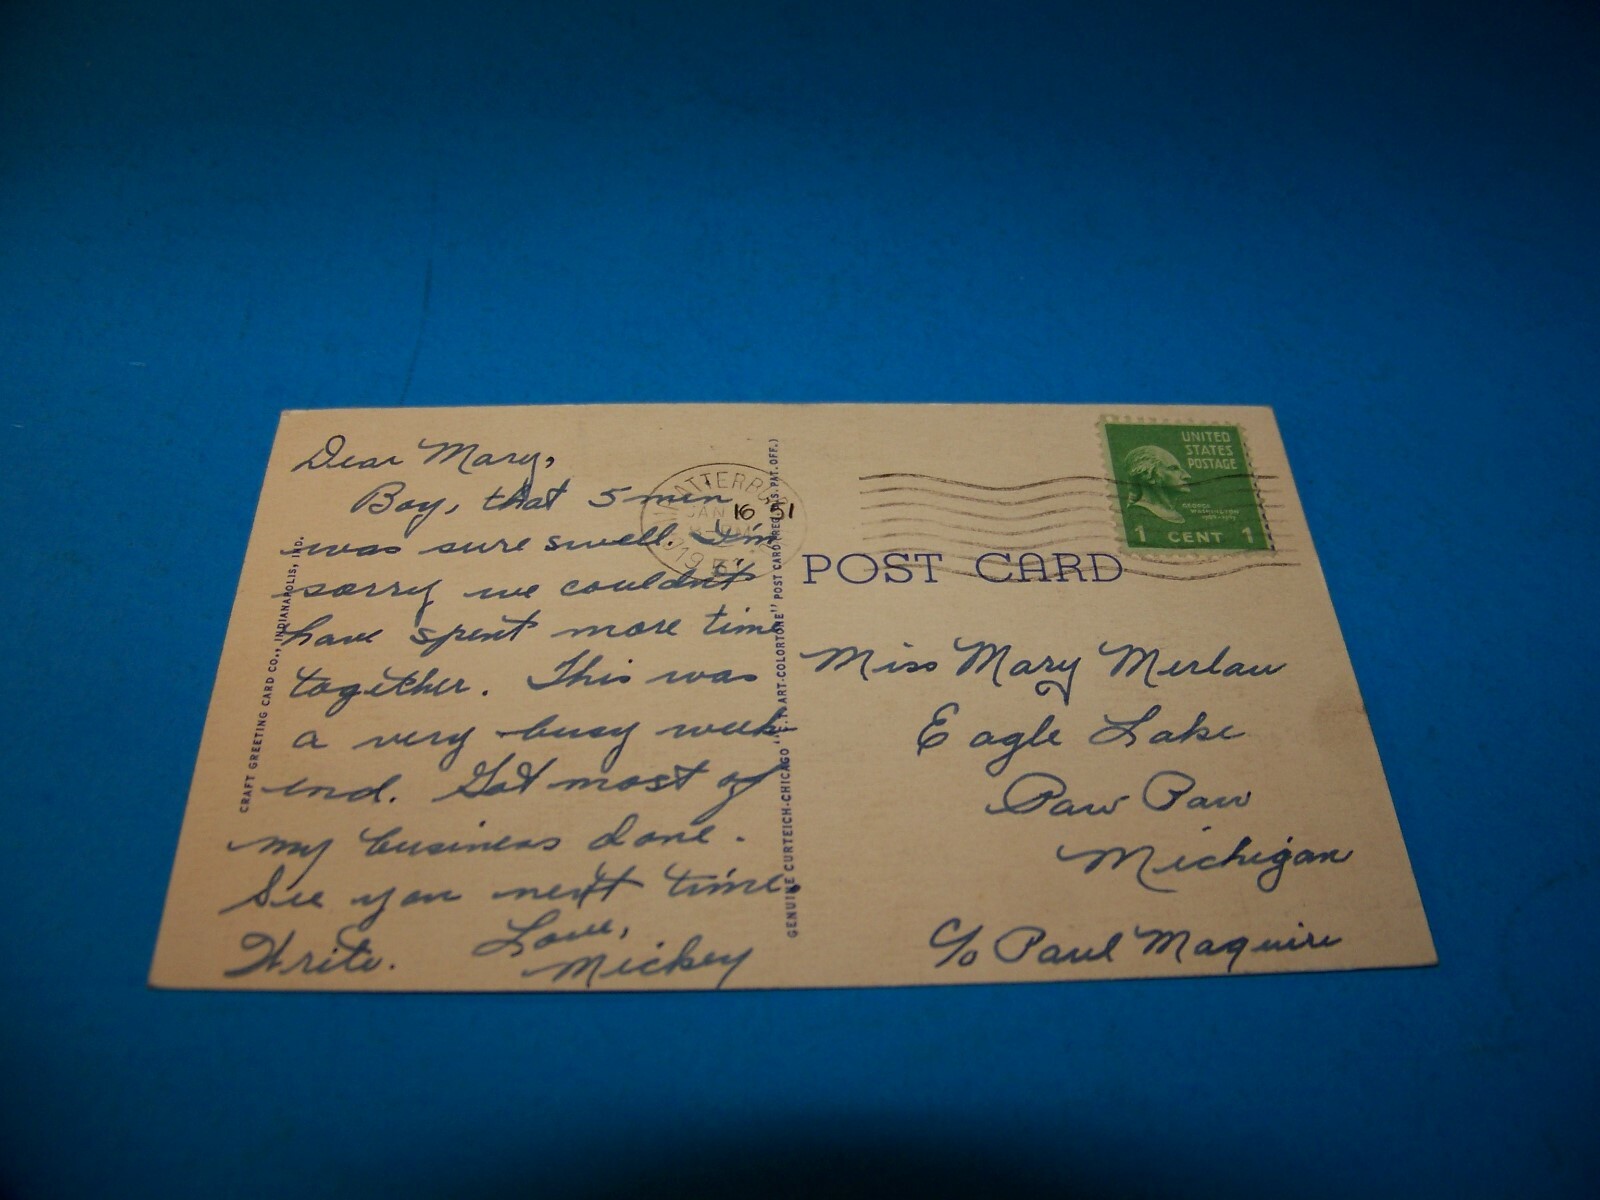 Dear Mary,
Boy, that 5 min
was sure swell. I'm
sorry we couldn't
have spent more time
together. This was
a very busy week
end. Got most of
my business done.
See you next time.
Love,
Write. Mickey
CRAFT GREETING CARD CO., INDIANAPOLIS, IND.
JAN 16 51
GENUINE CURTEICH-CHICAGO "C.T. ART-COLORTONE" POST CARD (REG. U.S. PAT. OFF.)
UNITED
STATES
POSTAGE
GEORGE
WASHINGTON
1 CENT 1
POST CARD
Miss Mary Merlau
Eagle Lake
Paw Paw
Michigan
c/o Paul Maguire